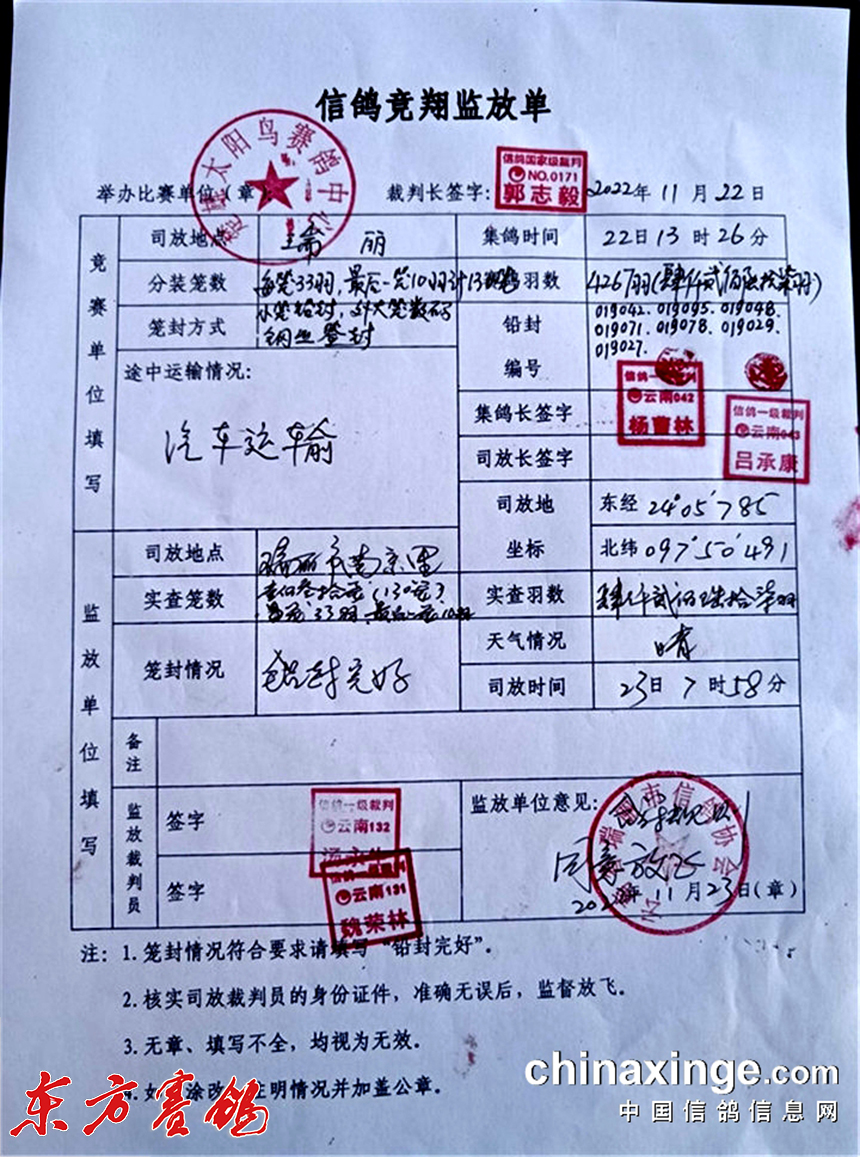 信鸽竞翔监放单
太阳鸟赛鸽中心
举办比赛单位(章)
裁判长签字:
信鸽国家级裁判
NO.0171
郭志毅
2022年11月22日
竞赛单位填写
司放地点 瑞丽
集鸽时间 22日13时26分
分装笼数 每笼33羽,最后一笼10羽计13
羽数 4267羽(肆仟贰佰陆拾柒羽)
笼封方式
铅封
编号
019042. 019095. 019048.
019071. 019078. 019029.
019027.
途中运输情况:
汽车运输
集鸽长签字
信鸽一级裁判
云南042
杨曹林
司放长签字
信鸽一级裁判
云南043
吕承康
司放地
坐标
东经 24°05′785
北纬 097°50′491
监放单位填写
司放地点 瑞丽市
实查笼数
实查羽数 肆仟贰佰陆拾柒羽
笼封情况 铅封完好
天气情况 晴
司放时间 23日7时58分
备注
监放裁判员
签字
信鸽一级裁判
云南132
签字
信鸽一级裁判
云南131
魏荣林
监放单位意见:
同意放飞
瑞丽市信鸽协会
2022年11月23日(章)
注:1.笼封情况符合要求请填写“铅封完好”。
2.核实司放裁判员的身份证件,准确无误后,监督放飞。
3.无章、填写不全,均视为无效。
4.如 涂改 证明情况并加盖公章。
东方赛鸽
chinaxinge.com
中国信鸽信息网